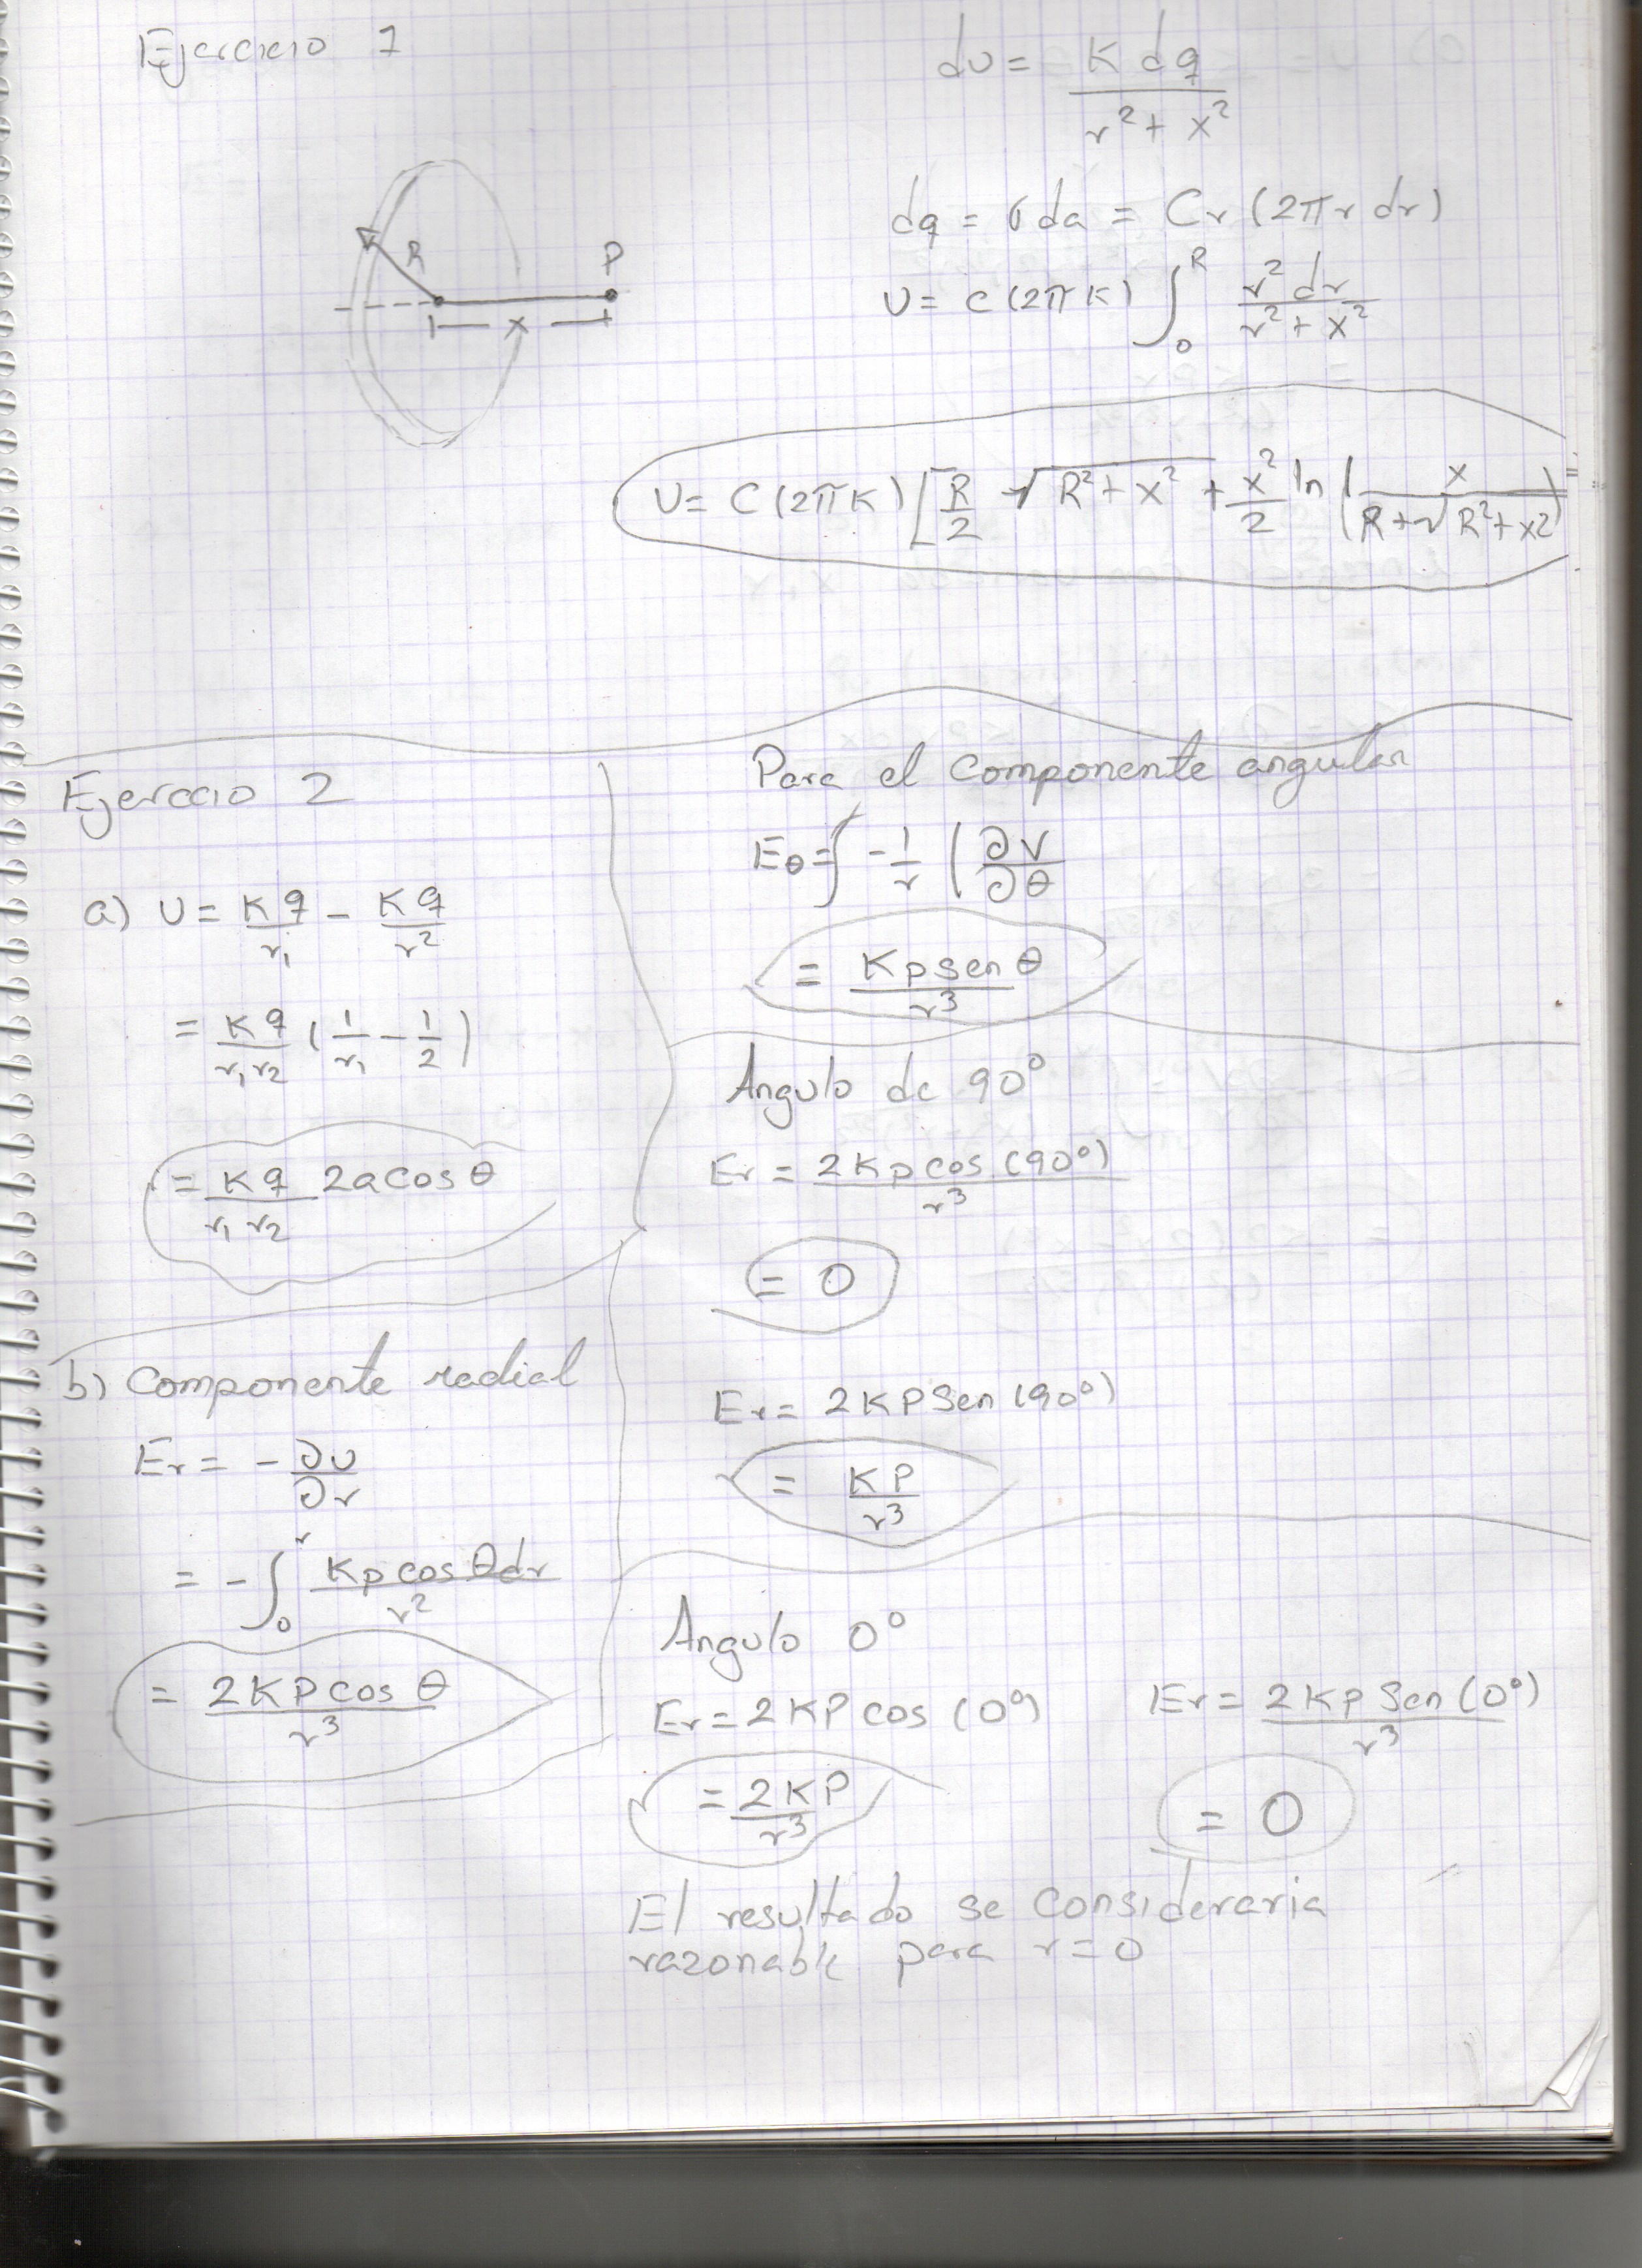 Ejercicio 1
dU = K dq / r² + x²
dq = σ da = Cr (2πr dr)
R
P
x
U = C (2πK) ∫₀ᴿ r² dr / r² + x²
U = C (2πK) [R/2 √R² + x² + x²/2 ln (x / R + √R² + x²) =
Ejerccio 2
a) U = Kq/r₁ - Kq/r²
= Kq/r₁r₂ (1/r₁ - 1/2)
= Kq/r₁ r₂ 2a cos θ
b) Componente radial
Er = - ∂U/∂r
= - ∫₀ʳ Kp cos θ dr / r²
= 2KP cos θ / r³
Para el componente angular
Eθ = ∫ - 1/r ( ∂V/∂θ
= Kp sen θ / r³
Angulo de 90°
Er = 2Kp cos (90°) / r³
= 0
Er = 2KP Sen (90°)
= KP / r³
Angulo 0°
Er = 2KP cos (0°)
= 2KP / r³
Er = 2Kp Sen (0°) / r³
= 0
El resultado se consideraria
razonable para r = 0